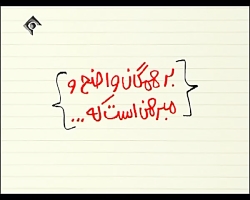 بر همگان واضح و
مبرهن است که ...